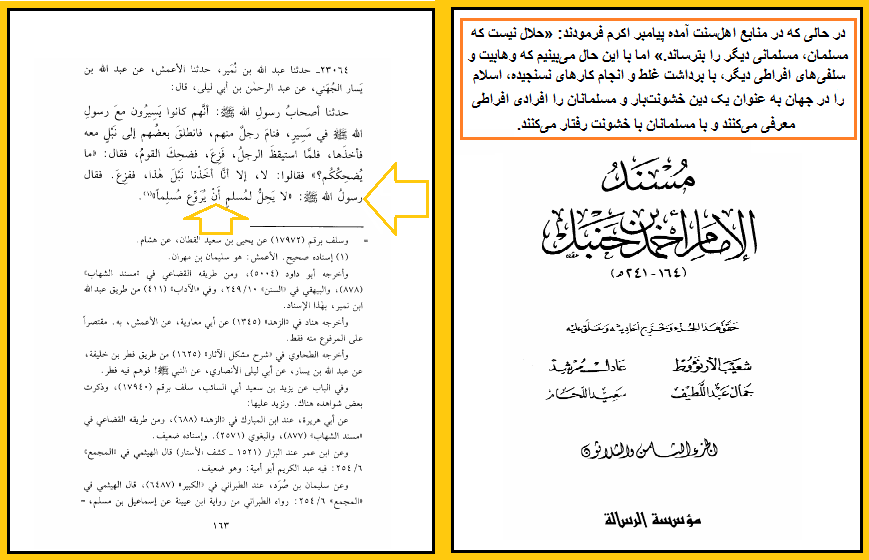 در حالی که در منابع اهل‌سنت آمده پیامبر اکرم فرمودند: «حلال نیست که
مسلمان، مسلمانی دیگر را بترساند.» اما با این حال می‌بینیم که وهابیت و
سلفی‌های افراطی دیگر، با برداشت غلط و انجام کارهای نسنجیده، اسلام
را در جهان به عنوان یک دین خشونت‌بار و مسلمانان را افرادی افراطی
معرفی می‌کنند و با مسلمانان با خشونت رفتار می‌کنند.
مسند
الإمام أحمد بن حنبل
(١٦٤ - ٢٤١ هـ)
حقق هذا الجزء وخرج أحاديثه وعلق عليه
شعيب الأرنؤوط عادل مرشد
جمال عبد اللطيف سعيد اللحام
الجزء الثامن والثلاثون
مؤسسة الرسالة
٢٣٠٦٤ـ حدثنا عبد الله بن نُمَير، حدثنا الأعمش، عن عبد الله بن
يَسار الجُهَني، عن عبد الرحمٰن بن أبي ليلى، قال:
حدثنا أصحابُ رسولِ الله ﷺ: أنَّهم كانوا يَسِيرُون معَ رسولِ
الله ﷺ في مَسِيرٍ، فنامَ رجلٌ منهم، فانطلقَ بعضُهم إلى نَبْلٍ معه
فأخذَها، فلمَّا استيقظَ الرجلُ، فَزِعَ، فضحِكَ القومُ، فقال: «ما
يُضحِكُكُم؟» فقالوا: لا، إلا أنَّا أخَذْنا نَبْلَ هٰذا، ففَزِعَ. فقال
رسولُ الله ﷺ: «لا يَحِلُّ لمُسلمٍ أنْ يُرَوِّعَ مُسلِماً»(١).
= وسلف برقم (١٧٩٧٢) عن يحيى بن سعيد القطان، عن هشام.
(١) إسناده صحيح. الأعمش: هو سليمان بن مهران.
وأخرجه أبو داود (٥٠٠٤)، ومن طريقه القضاعي في «مسند الشهاب»
(٨٧٨)، والبيهقي في «السنن» ٢٤٩/١٠، وفي «الآداب» (٤١١) من طريق عبد الله
ابن نمير، بهٰذا الإسناد.
وأخرجه هناد في «الزهد» (١٣٤٥) عن أبي معاوية، عن الأعمش، به. مقتصراً
على المرفوع منه فقط.
وأخرجه الطحاوي في «شرح مشكل الآثار» (١٦٢٥) من طريق فطر بن خليفة،
عن عبد الله بن يسار، عن أبي ليلى الأنصاري، عن النبي ﷺ! فوهم فيه فطر.
وفي الباب عن يزيد بن سعيد أبي السائب، سلف برقم (١٧٩٤٠)، وذكرت
بعض شواهده هناك. ونزيد عليها:
عن أبي هريرة، عند ابن المبارك في «الزهد» (٦٨٨)، ومن طريقه القضاعي في
«مسند الشهاب» (٨٧٧)، والبغوي (٢٥٧١). وإسناده ضعيف.
وعن ابن عمر عند البزار (١٥٢١ ـ كشف الأستار) قال الهيثمي في «المجمع»
٢٥٤/٦: فيه عبد الكريم أبو أمية: وهو ضعيف.
وعن سليمان بن صُرَد، عند الطبراني في «الكبير» (٦٤٨٧)، قال الهيثمي في
«المجمع» ٢٥٤/٦: رواه الطبراني من رواية ابن عيينة عن إسماعيل بن مسلم، =
١٦٣